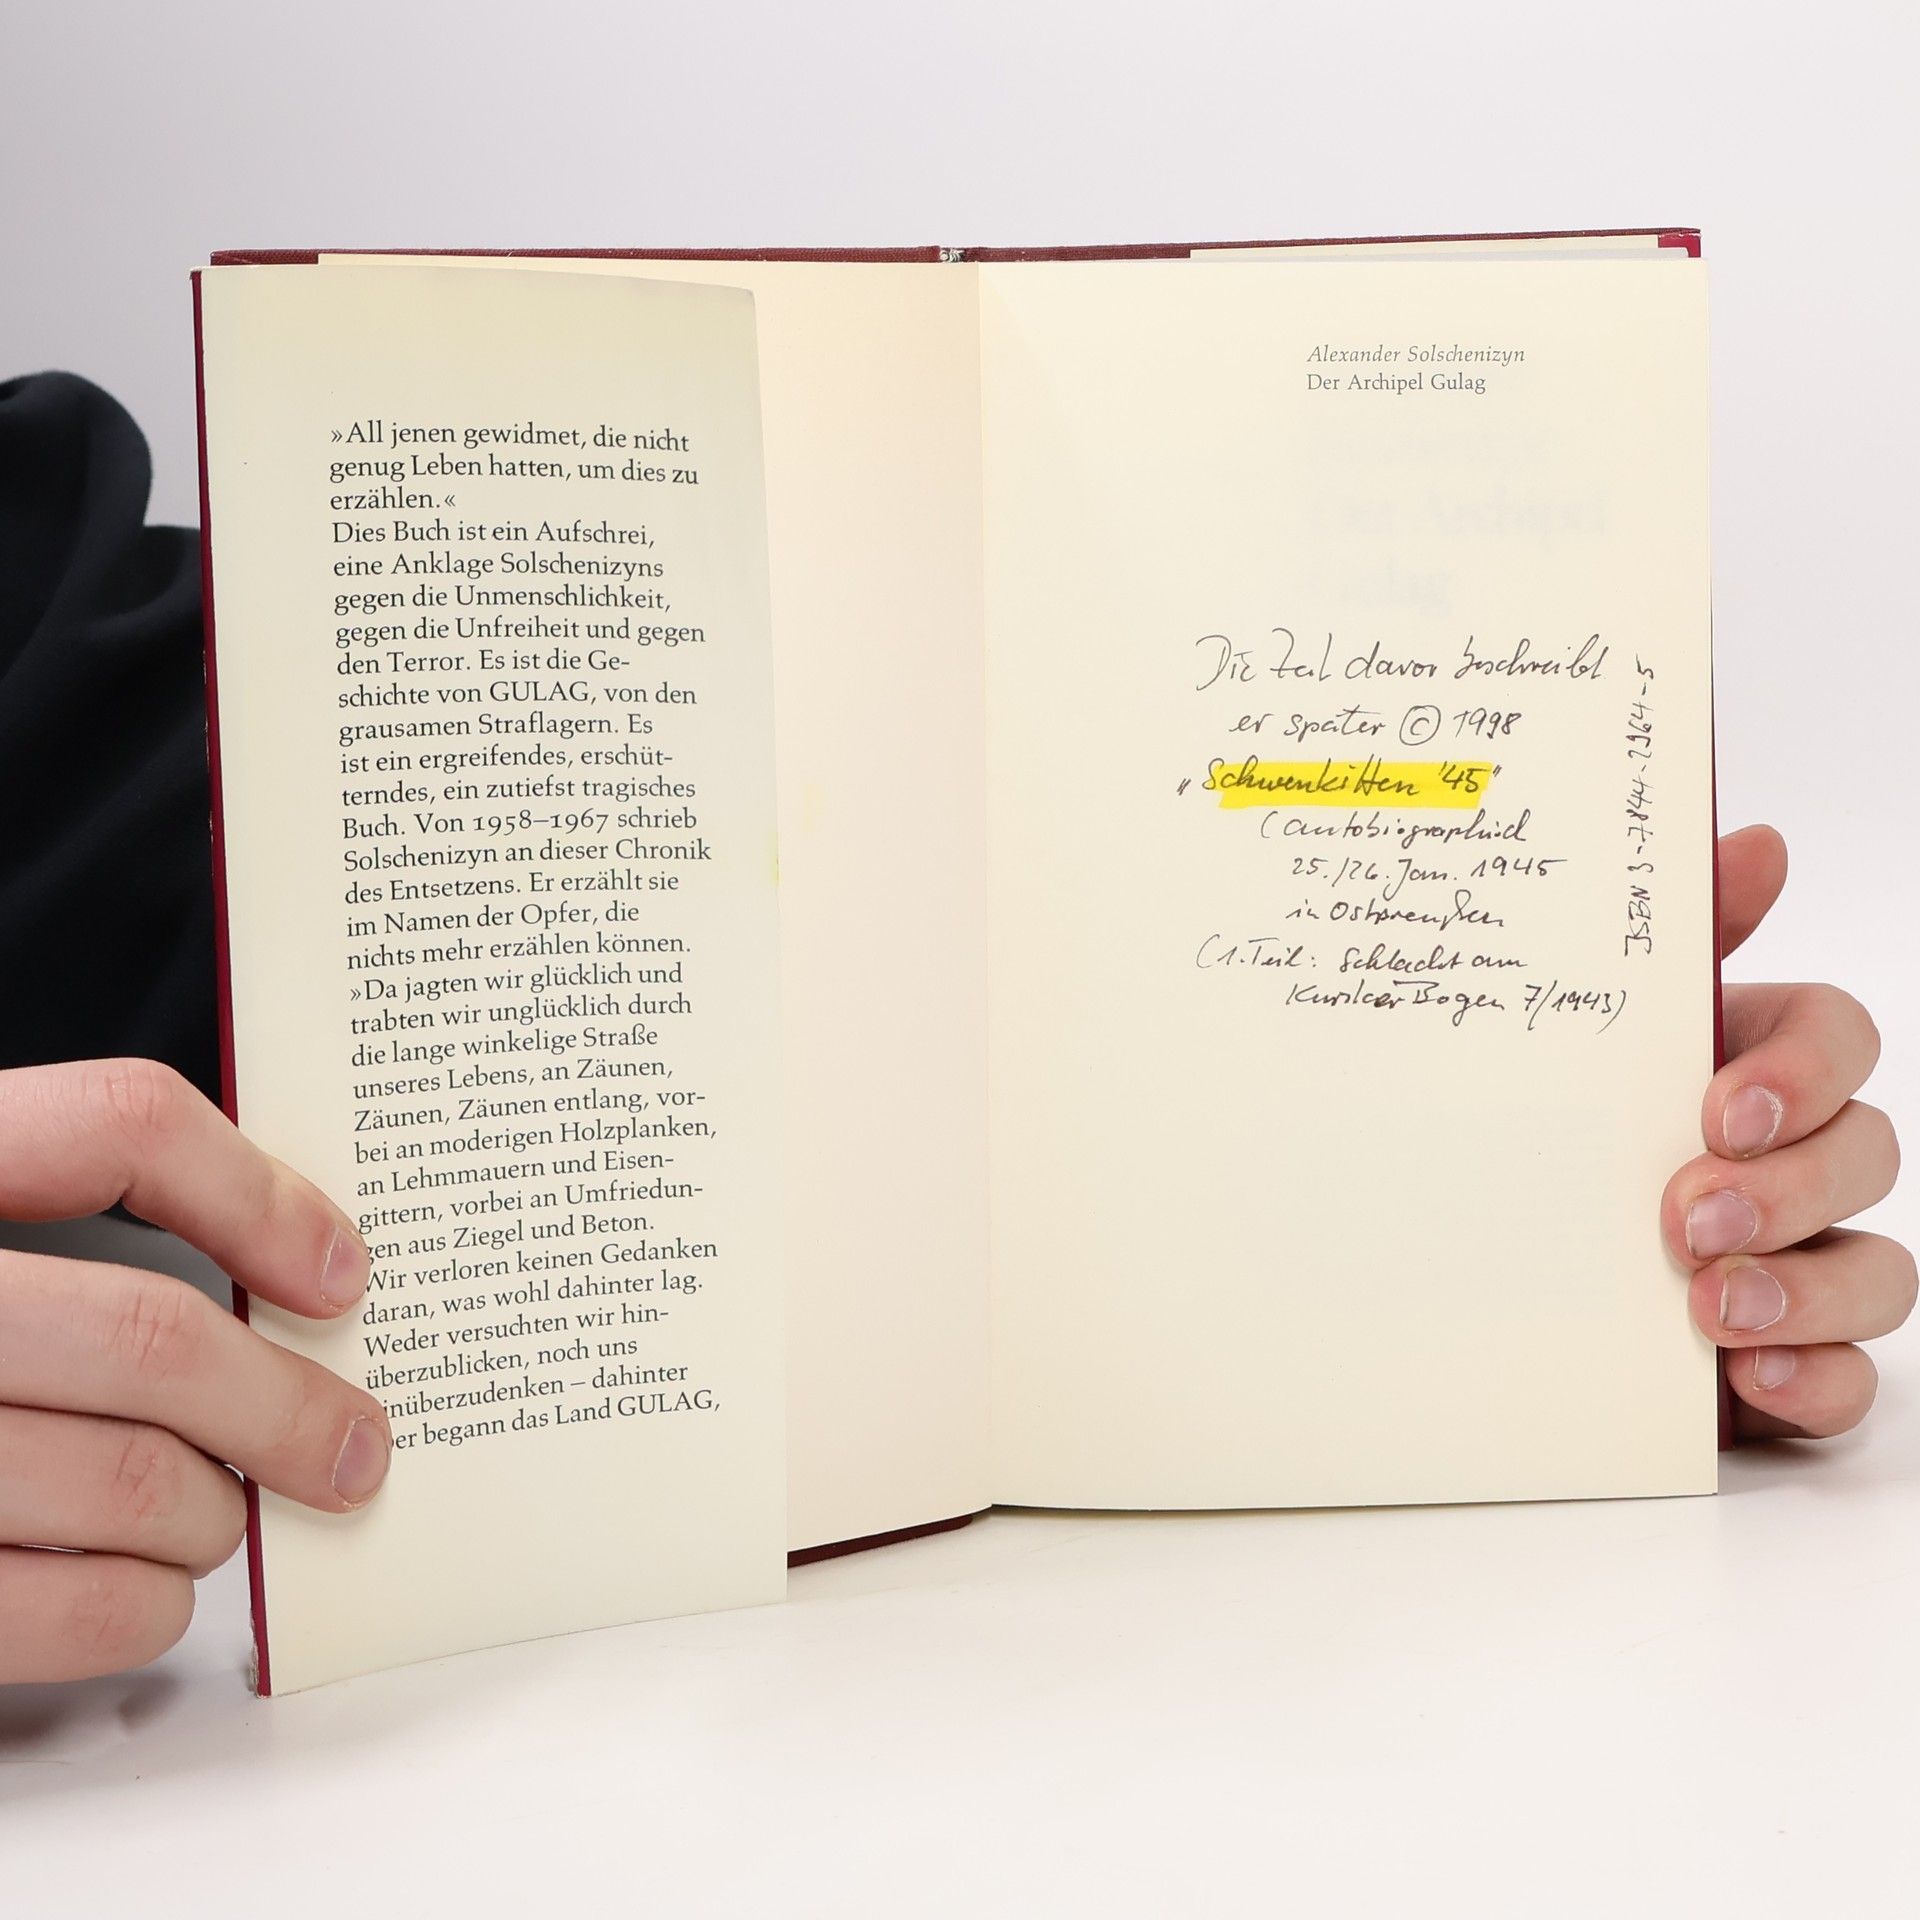 »All jenen gewidmet, die nicht
genug Leben hatten, um dies zu
erzählen.«
Dies Buch ist ein Aufschrei,
eine Anklage Solschenizyns
gegen die Unmenschlichkeit,
gegen die Unfreiheit und gegen
den Terror. Es ist die Ge-
schichte von GULAG, von den
grausamen Straflagern. Es
ist ein ergreifendes, erschüt-
terndes, ein zutiefst tragisches
Buch. Von 1958–1967 schrieb
Solschenizyn an dieser Chronik
des Entsetzens. Er erzählt sie
im Namen der Opfer, die
nichts mehr erzählen können.
»Da jagten wir glücklich und
trabten wir unglücklich durch
die lange winkelige Straße
unseres Lebens, an Zäunen,
Zäunen, Zäunen entlang, vor-
bei an moderigen Holzplanken,
an Lehmmauern und Eisen-
gittern, vorbei an Umfriedun-
gen aus Ziegel und Beton.
Wir verloren keinen Gedanken
daran, was wohl dahinter lag.
Weder versuchten wir hin-
überzublicken, noch uns
inüberzudenken – dahinter
er begann das Land GULAG,
Alexander Solschenizyn
Der Archipel Gulag
Die Zeit davor beschreibt
er später © 1998
„Schwenkitten '45"
(autobiographisch
25./26. Jan. 1945
in Ostpreußen
(1. Teil: Schlacht am
Kursker Bogen 7/1943)
ISBN 3-7844-2964-5